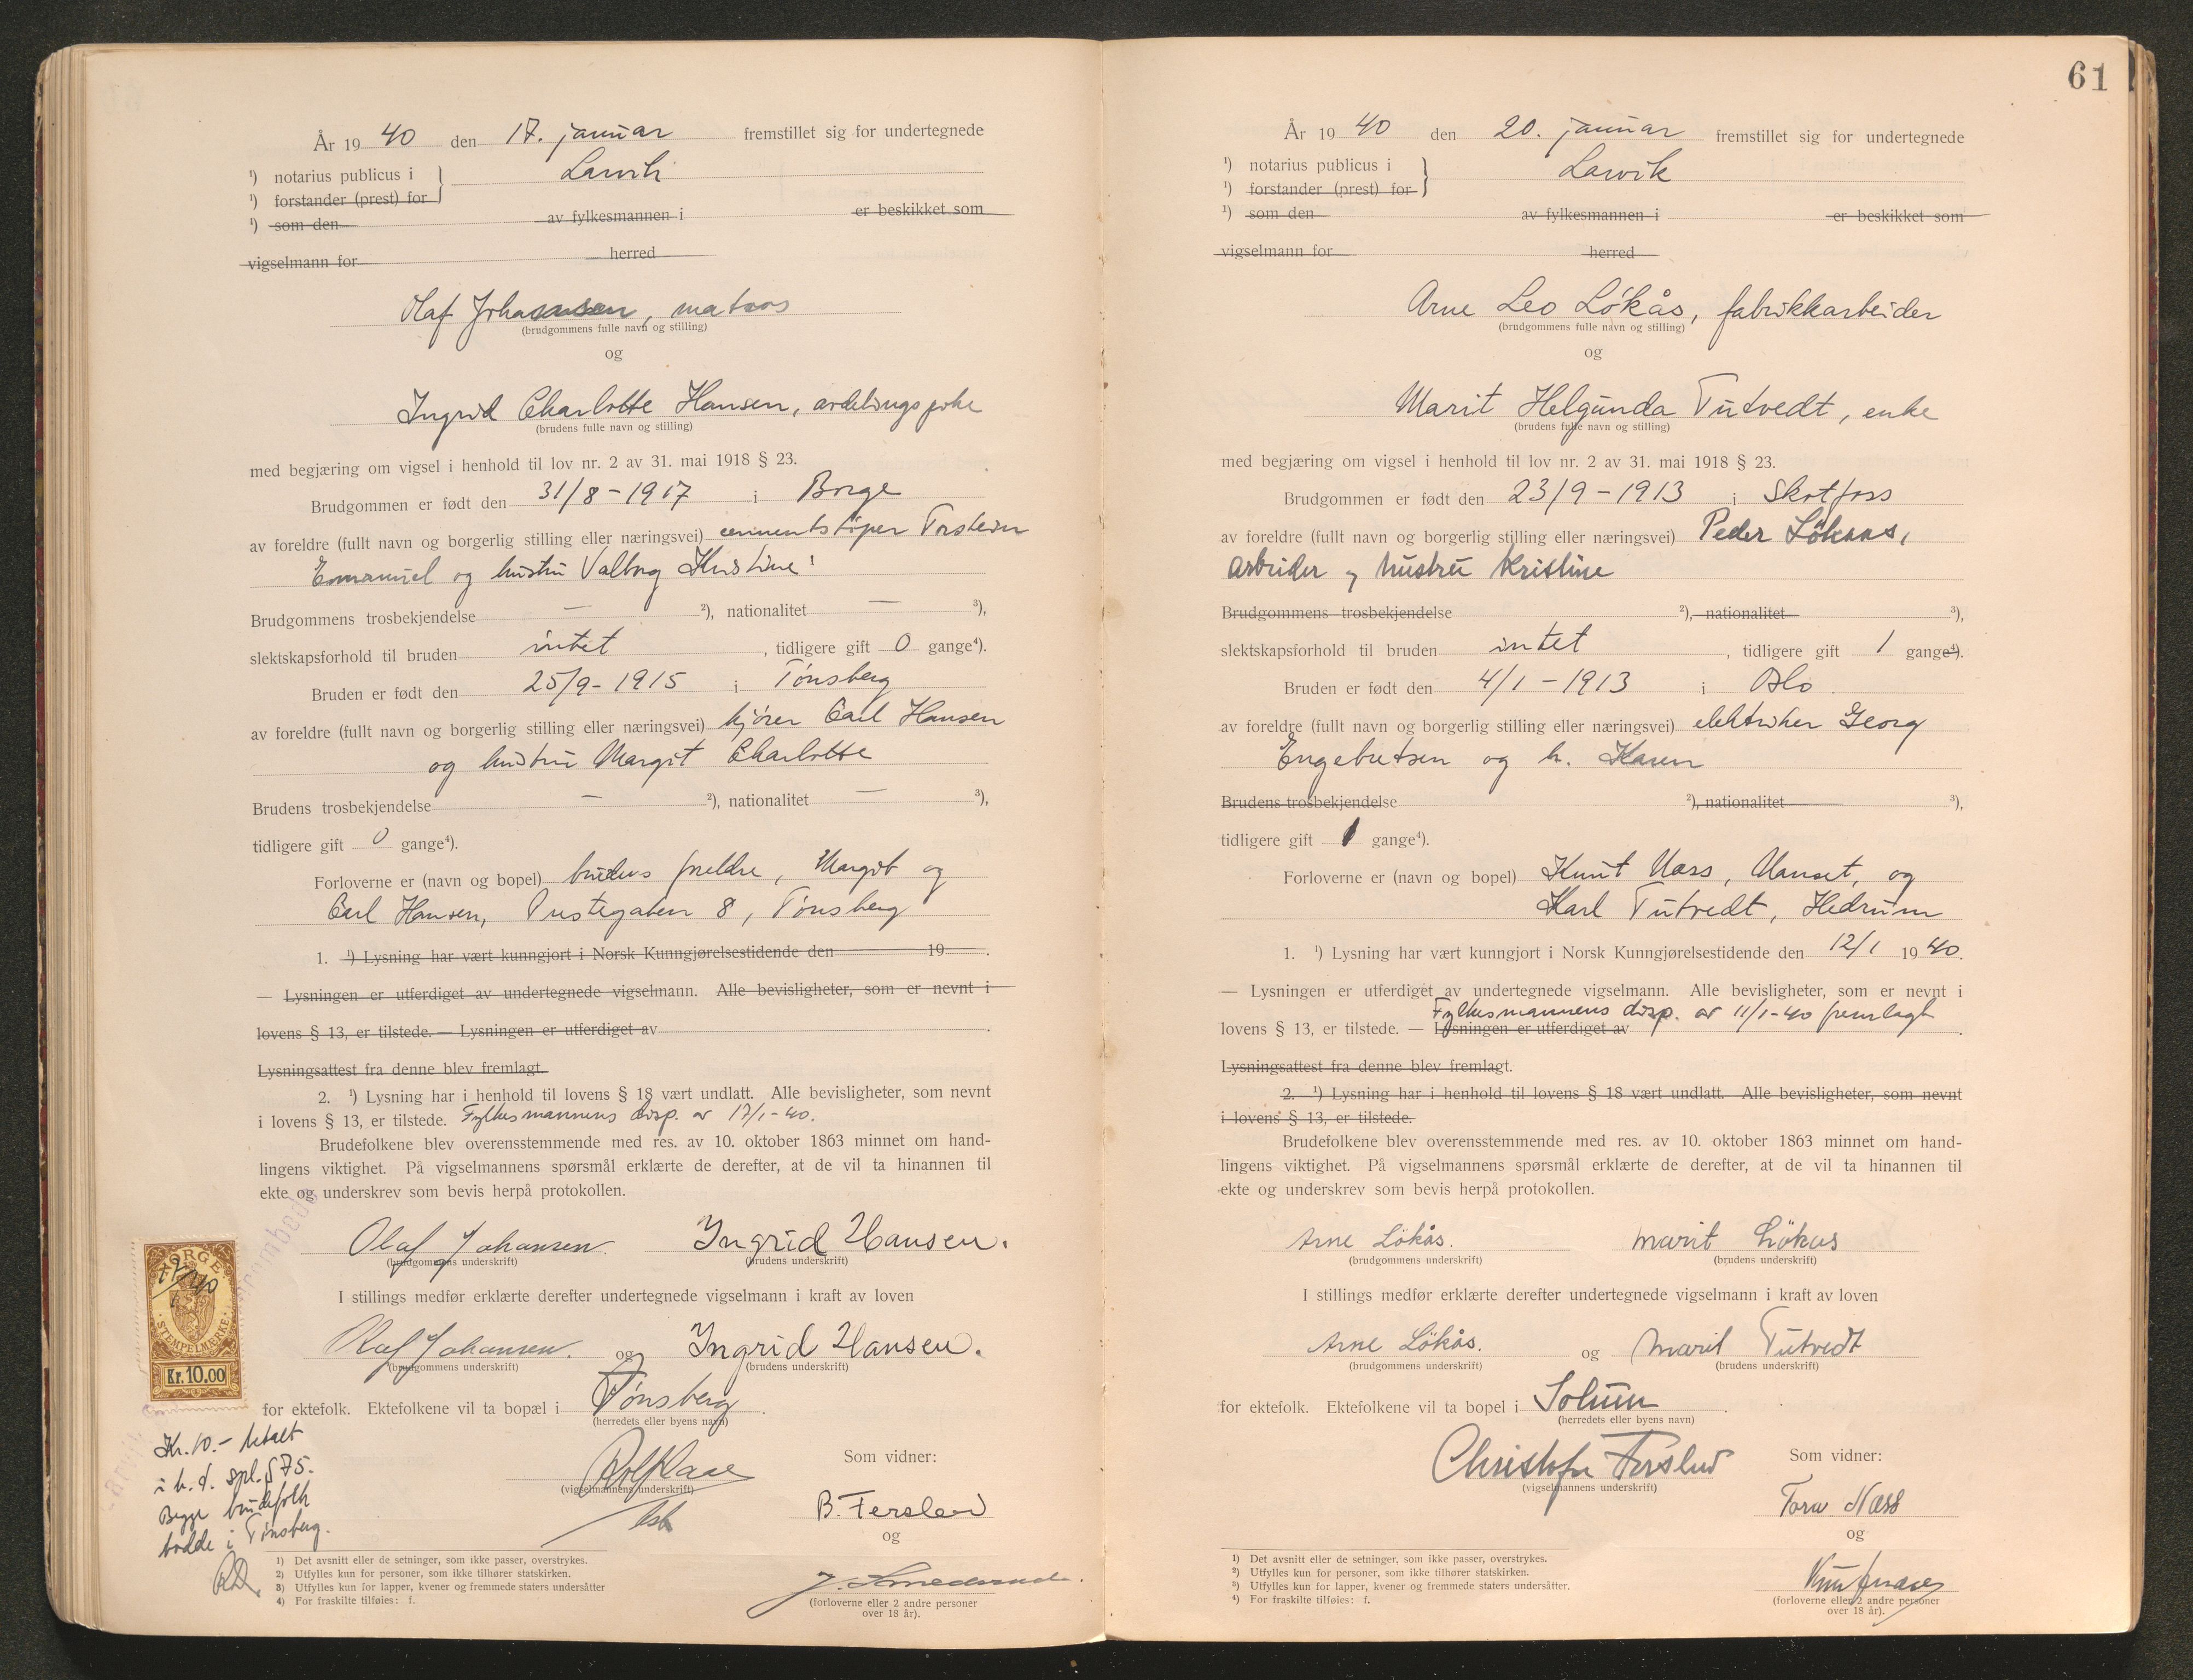 År 19 40 den 17. januar fremstillet sig for undertegnede
¹) notarius publicus i } Larvik
¹) forstander (prest) for
¹) som den av fylkesmannen i er beskikket som
vigselmann for herred
Olaf Johannsen, matros
(brudgommens fulle navn og stilling)
og
Ingrid Charlotte Hansen, avdelingsfrøken
(brudens fulle navn og stilling)
med begjæring om vigsel i henhold til lov nr. 2 av 31. mai 1918 § 23.
Brudgommen er født den 31/8 - 1917 i Borge
av foreldre (fullt navn og borgerlig stilling eller næringsvei) cementstøper Torstein
Emanuel og hustru Valborg Kristine
Brudgommens trosbekjendelse — ²), nationalitet — ³),
slektskapsforhold til bruden intet, tidligere gift 0 gange⁴).
Bruden er født den 25/9 - 1915 i Tønsberg
av foreldre (fullt navn og borgerlig stilling eller næringsvei) kjører Carl Hansen
og hustru Margit Charlotte
Brudens trosbekjendelse — ²), nationalitet — ³),
tidligere gift 0 gange⁴).
Forloverne er (navn og bopel) brudens foreldre, Margit og
Carl Hansen, Prestegaten 8, Tønsberg
1. ¹) Lysning har vært kunngjort i Norsk Kunngjørelsestidende den 19 .
— Lysningen er utferdiget av undertegnede vigselmann. Alle bevisligheter, som er nevnt i
lovens § 13, er tilstede. — Lysningen er utferdiget av .
Lysningsattest fra denne blev fremlagt.
2. ¹) Lysning har i henhold til lovens § 18 vært undlatt. Alle bevisligheter, som nevnt
i lovens § 13, er tilstede. Fylkesmannens disp. av 17/1-40.
Brudefolkene blev overensstemmende med res. av 10. oktober 1863 minnet om hand-
lingens viktighet. På vigselmannens spørsmål erklærte de derefter, at de vil ta hinannen til
ekte og underskrev som bevis herpå protokollen.
Olaf Johansen. Ingrid Hansen.
(brudgommens underskrift) (brudens underskrift)
I stillings medfør erklærte derefter undertegnede vigselmann i kraft av loven
Olaf Johansen. og Ingrid Hansen.
(brudgommens underskrift) (brudens underskrift)
for ektefolk. Ektefolkene vil ta bopæl i Tønsberg.
(herredets eller byens navn)
NORGE
17/1 40
STEMPELMERKE
Kr. 10.00
Kr. 10.- betalt
i h. t. spl. § 75.
Begge brudefolk
bodde i Tønsberg.
(vigselmannens underskrift)
Som vidner:
B. Ferslev
og
J. Smedsrud.
(forloverne eller 2 andre personer
over 18 år).
1) Det avsnitt eller de setninger, som ikke passer, overstrykes.
2) Utfylles kun for personer, som ikke tilhører statskirken.
3) Utfylles kun for lapper, kvener og fremmede staters undersåtter
4) For fraskilte tilføies: f.
61
År 19 40 den 20. januar fremstillet sig for undertegnede
¹) notarius publicus i } Larvik
¹) forstander (prest) for
¹) som den av fylkesmannen i er beskikket som
vigselmann for herred
Arne Leo Løkås, fabrikkarbeider
(brudgommens fulle navn og stilling)
og
Marit Helgunda Tutvedt, enke
(brudens fulle navn og stilling)
med begjæring om vigsel i henhold til lov nr. 2 av 31. mai 1918 § 23.
Brudgommen er født den 23/9 - 1913 i Skotfoss
av foreldre (fullt navn og borgerlig stilling eller næringsvei) Peder Løkaas,
arbeider og hustru Kristine
Brudgommens trosbekjendelse ²), nationalitet ³),
slektskapsforhold til bruden intet, tidligere gift 1 gange⁴).
Bruden er født den 4/1 - 1913 i Oslo
av foreldre (fullt navn og borgerlig stilling eller næringsvei) elektriker Georg
Engebretsen og h. Karen
Brudens trosbekjendelse ²), nationalitet ³),
tidligere gift 1 gange⁴).
Forloverne er (navn og bopel) Knut Næss, Nanset, og
Karl Tutvedt, Hedrum
1. ¹) Lysning har vært kunngjort i Norsk Kunngjørelsestidende den 12/1 19 40.
— Lysningen er utferdiget av undertegnede vigselmann. Alle bevisligheter, som er nevnt i
Fylkesmannens disp. av 11/1-40 fremlagt
lovens § 13, er tilstede. — Lysningen er utferdiget av .
Lysningsattest fra denne blev fremlagt.
2. ¹) Lysning har i henhold til lovens § 18 vært undlatt. Alle bevisligheter, som nevnt
i lovens § 13, er tilstede.
Brudefolkene blev overensstemmende med res. av 10. oktober 1863 minnet om hand-
lingens viktighet. På vigselmannens spørsmål erklærte de derefter, at de vil ta hinannen til
ekte og underskrev som bevis herpå protokollen.
Arne Lökås. Marit Lökås
(brudgommens underskrift) (brudens underskrift)
I stillings medfør erklærte derefter undertegnede vigselmann i kraft av loven
Arne Lökås. og Marit Tutvedt
(brudgommens underskrift) (brudens underskrift)
for ektefolk. Ektefolkene vil ta bopel i Solum.
(herredets eller byens navn)
Christofer Ferslev
(vigselmannens underskrift)
Som vidner:
Næss
og
(forloverne eller 2 andre personer
over 18 år).
1) Det avsnitt eller de setninger, som ikke passer, overstrykes.
2) Utfylles kun for personer, som ikke tilhører statskirken.
3) Utfylles kun for lapper, kvener og fremmede staters undersåtter.
4) For fraskilte tilføies: f.